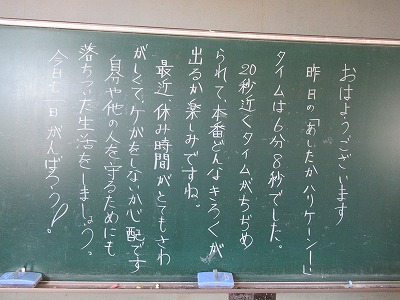 おはようございます
昨日の「あしたかハリケーン」
タイムは6分8秒でした。
20秒近くタイムがちぢめ
られて、本番どんなきろくが
出るか楽しみですね。
最近、休み時間がとてもさわ
がしくて、ケガをしないか心配です
自分や他の人を守るためにも
落ちついた生活をしましょう。
今日も一日がんばろう!。